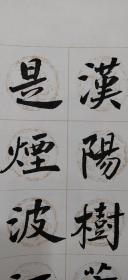 漢陽樹
是煙波